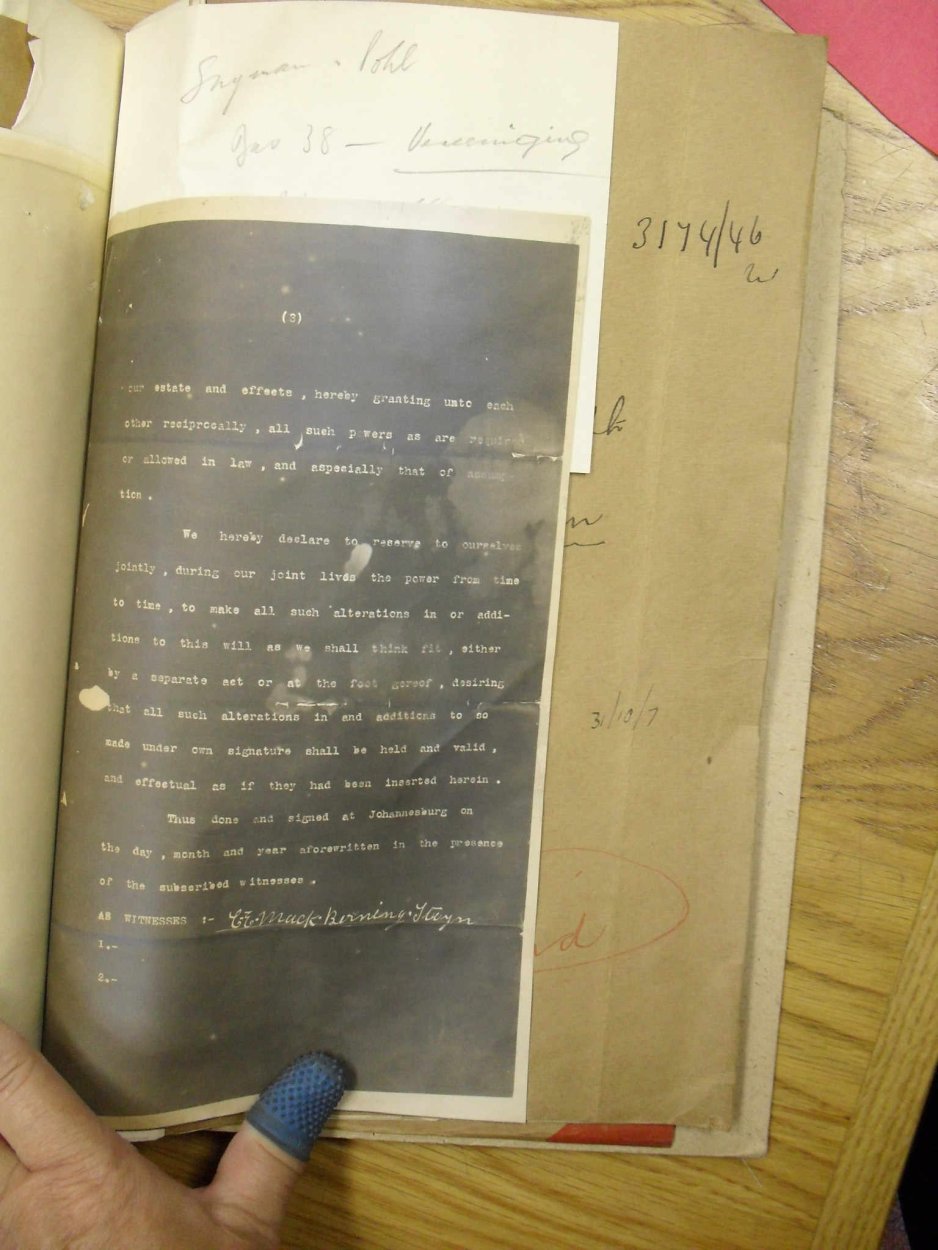 Snyman & Pohl
Bus 38 — Vereeniging
3174/46
(3)
our estate and effects , hereby granting unto each
other reciprocally , all such p wers as are required
or allowed in law , and aspecially that of assump-
tion .
We hereby declare to reserve to ourselves
jointly , during our joint lives the power from time
to time , to make all such alterations in or addi-
tions to this will as we shall think fit , either
by a separate act or at the foot gereof , desiring
that all such alterations in and additions to so
made under own signature shall be held and valid ,
and effectual as if they had been inserted herein .
Thus done and signed at Johannesburg on
the day , month and year aforewritten in the presence
of the subscribed witnesses .
AS WITNESSES :-
Steyn
1.-
2.-
31/10/7